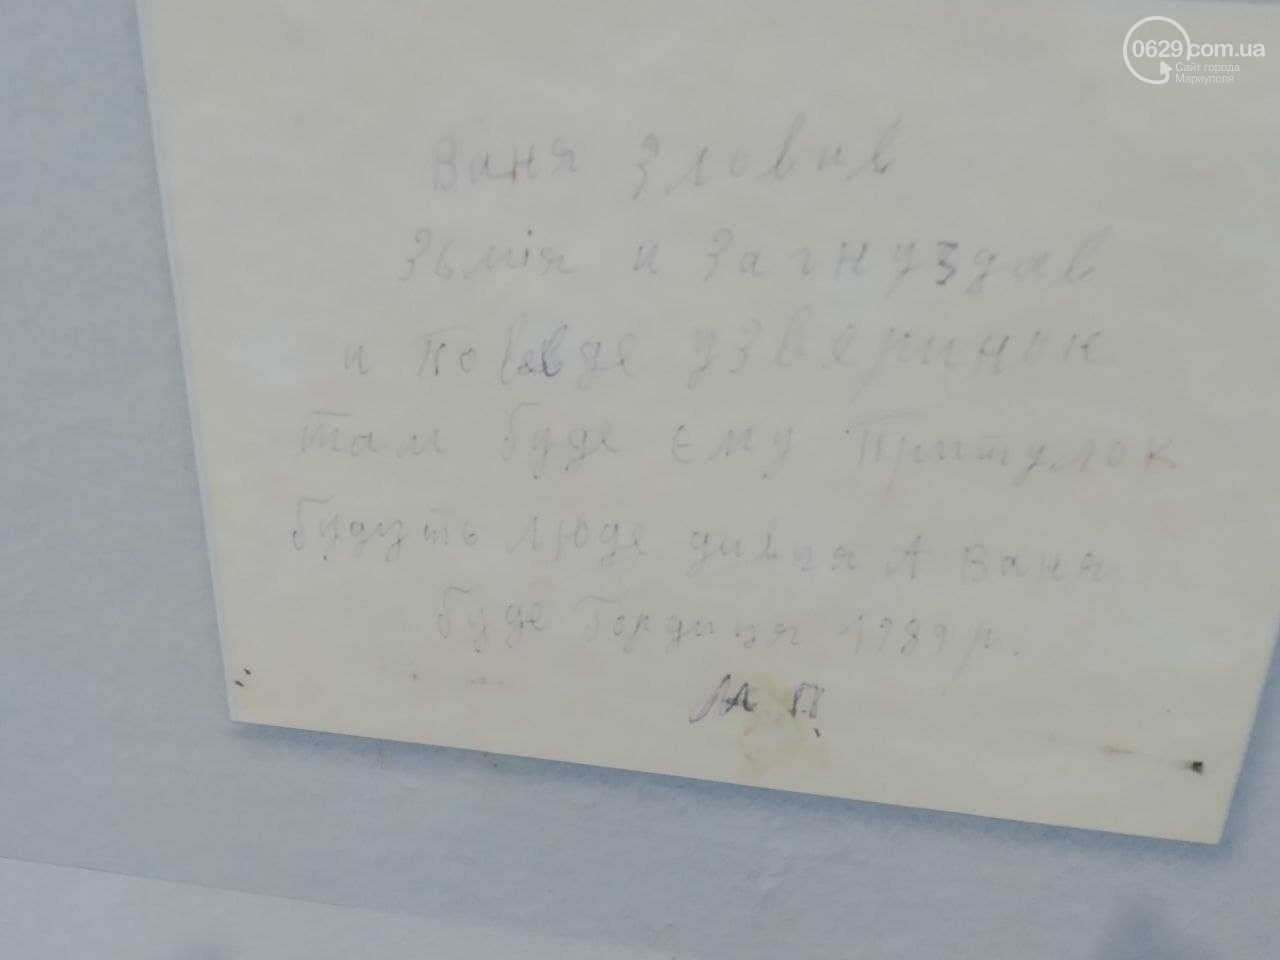 0629.com.ua
Сайт города
Мариуполя
Ваня зловив
Зьмія и Загнуздав
и узверинок
там буде єму Притулок
будуть люде дивця А Ваня
буде Гордиця 1989 р.
М П